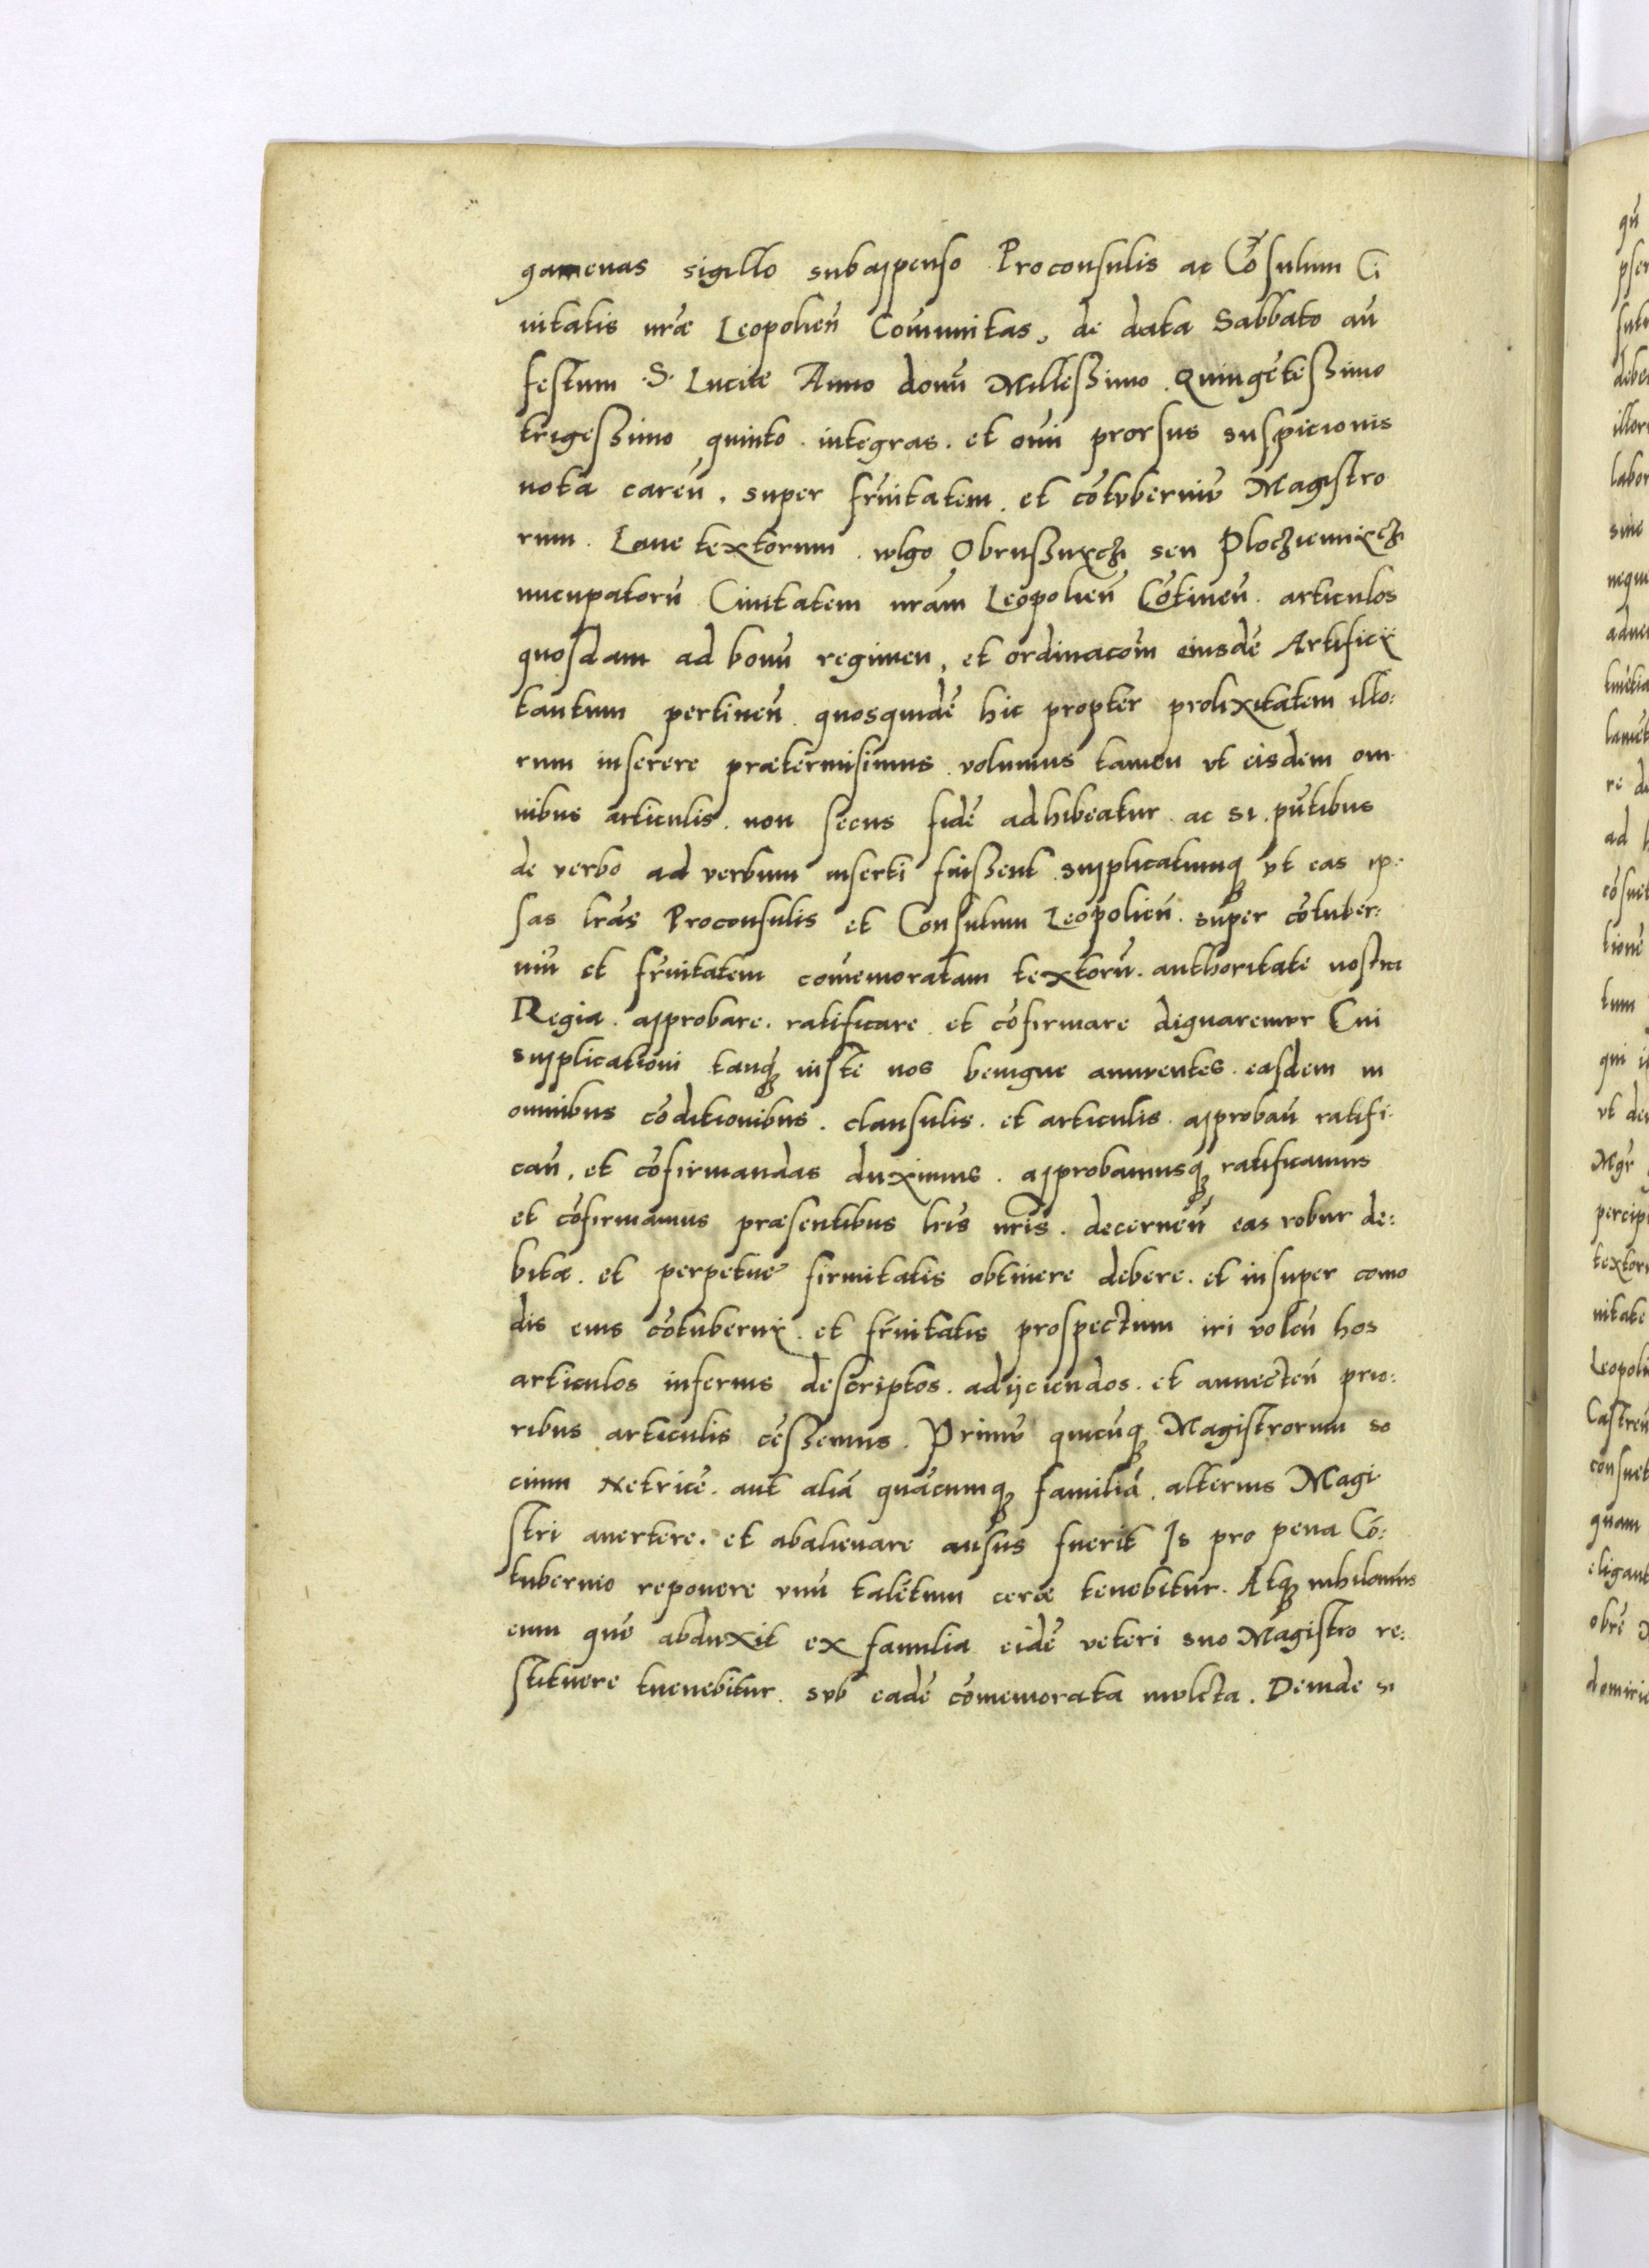 gamenas sigillo subappenso Proconsulis ac Cōsulum Ci
uitatis nr̄æ Leopolien̄ Com̄unitas, de data Sabbato an̄
festum .S. Luciæ Anno domī Milleßimo Quingēteßimo
trigeßimo quinto . integras . et om̄i prorsus suspicionis
nota caren̄ . super fr̄nitatem . et cōtuberniū Magistro
rum . Lane textorum . wlgo Obrußnixch seu Plochiennixch
nucupatorū Ciuitatem nr̄am Leopolien̄ Cōtinen̄ . articulos
quosdam ad bonū regimen, et ordinacōm eiusdē Artificij
tantum pertinen̄ . quosquidē hic propter prolixitatem illo:
rum inserere prætermisimus . volumus tamen vt eisdem om
nibus articulis . non secus fidē adhibeatur . ac si . pn̄tibus
de verbo ad verbum inserti fuißent supplicatumq3 vt eas ip:
sas lr̄as Proconsulis et Consulum Leopolien̄ . super cōtuber:
niū et fr̄nitatem com̄emoratam textorū . authoritate nostra
Regia . approbare . ratificare et cōfirmare dignaremur Cui
supplicationi tanq3 iuste nos benigne annuentes . easdem in
omnibus cōditionibus . clausulis . et articulis . approban̄ ratifi
can̄ . et cōfirmandas duximus . approbamusq3 ratificamus
et cōfirmamus præsentibus lr̄is nr̄is . decernen̄ eas robur de:
bitæ . et perpetuæ firmitatis obtinere debere . et insuper como
dis eius cōtubernij . et fr̄nitatis prospectum iri volen̄ hos
articulos inferius descriptos . adijciendos . et annecten̄ prio:
ribus articulis cēßemus . Primū quicūq3 Magistrorum so
cium Netricē . aut aliā quācumq3 familiā . alterius Magi
stri auertere . et abalienare ausus fuerit Is pro pena Cō:
tubernio reponere vnū talētum ceræ tenebitur . Atq3 nihilomin9
eum quē abduxit ex familia eidē veteri suo Magistro re:
stituere tuenebitur . sub eadē cōmemorata mulcta . Deinde si